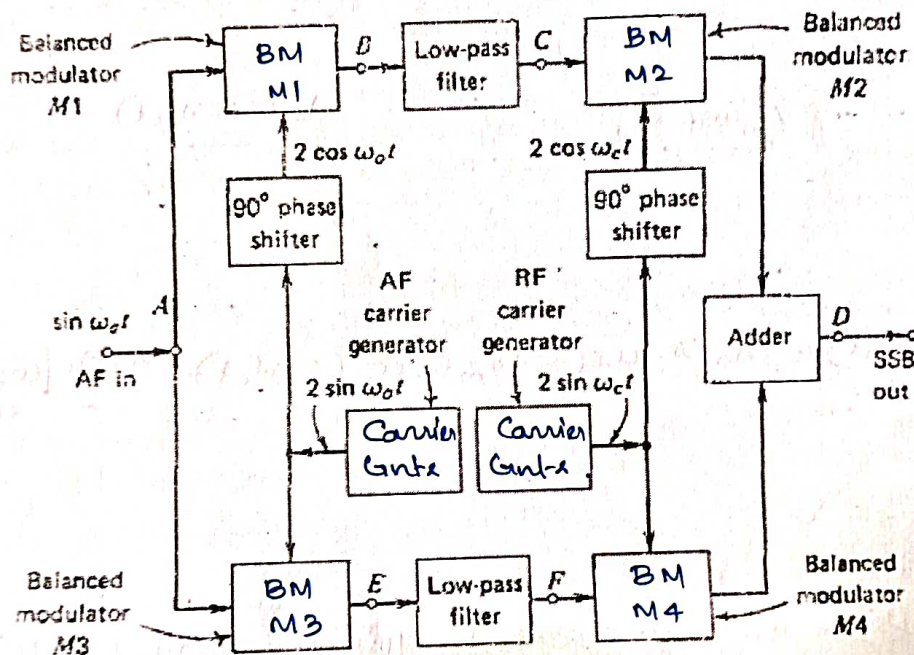 Balanced
modulator
M1
BM
M1
B
Low-pass
filter
C
BM
M2
Balanced
modulator
M2
2 cos ω₀t
2 cos ω_c t
90° phase
shifter
90° phase
shifter
A
sin ω_c t
AF in
AF
carrier
generator
RF
carrier
generator
2 sin ω₀t
2 sin ω_c t
Carrier
Carrier
Adder
D
SSB
out
Balanced
modulator
M3
BM
M3
E
Low-pass
filter
F
BM
M4
Balanced
modulator
M4